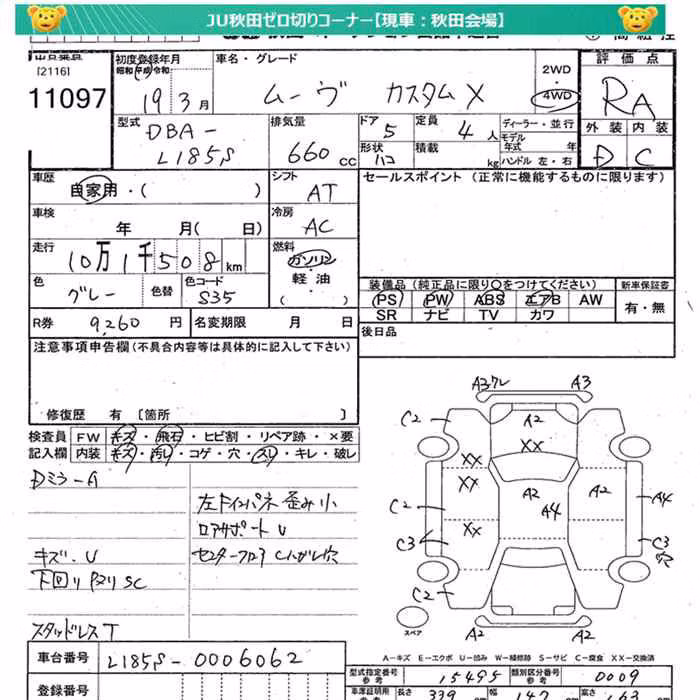 JU秋田ゼロ切りコーナー【現車：秋田会場】
[2116]
11097
初度登録年月
昭和 平成 令和
19年3月
車名・グレード
ムーヴ カスタムX
2WD
・
4WD
評価点
RA
外装 内装
D C
型式
DBA-
L185S
排気量
660cc
ドア
5
形状
ハコ
定員
4人
積載
kg
ディーラー・並行
モデル
年式 年
ハンドル 左・右
車歴
自家用・( )
シフト
AT
セールスポイント（正常に機能するものに限ります）
車検
年 月( 日)
冷房
AC
走行
10万1千508km
燃料
ガソリン
・
軽油
( )
色
グレー
色替
色コード
S35
装備品（純正品に限り○をつけてください）
新車保証書
PS PW ABS エアB AW
SR ナビ TV カワ
有・無
R券 9,260円
名変期限 月 日
後日品
注意事項申告欄(不具合内容等は具体的に記入して下さい)
修復歴 有 [箇所 ]
検査員
記入欄
FW キズ・飛石・ヒビ割・リペア跡・×要
内装 キズ・汚れ・コゲ・穴・スリ・キレ・破レ
Dミラ-A
左Fインパネ歪み小
ロアサポートU
キズ・U
センターフロア
下回りサビSC
スタッドレスT
A3ワレ A3
C2 A2 C2
XX
XX
XX A2 A2
C2 A4 A4
XX
C3 C3
穴
C2
A2 A2
スペア
A-キズ E-エクボ U-凹み W-補修跡 S-サビ C-腐食 XX-交換済
車台番号 L185S-0006062
登録番号
型式指定番号
参考
15495
類別区分番号
参考
0009
車庫証明用
長さ 339 幅 147 高さ 163